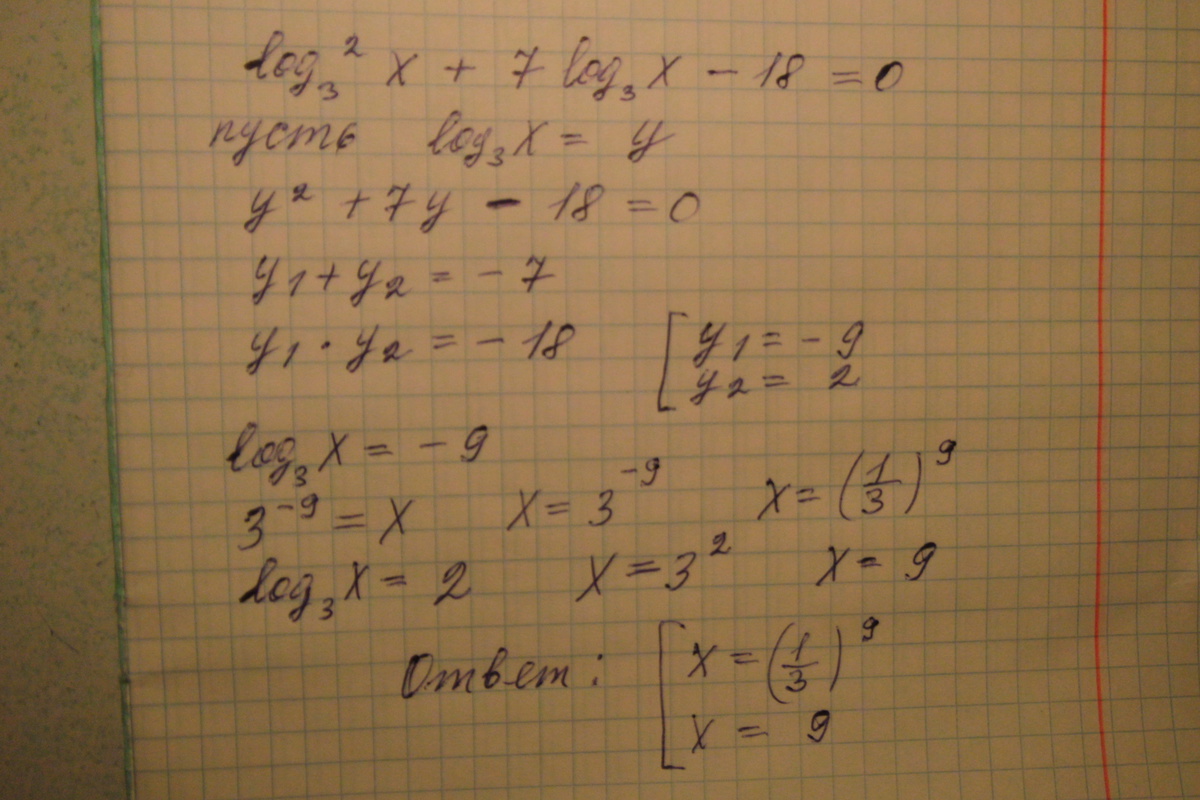 log₃² x + 7 log₃ x − 18 = 0
пусть log₃ x = y
y² + 7y − 18 = 0
y₁ + y₂ = − 7
y₁ · y₂ = − 18 [ y₁ = − 9
y₂ = 2
log₃ x = − 9
3⁻⁹ = x x = 3⁻⁹ x = (1/3)⁹
log₃ x = 2 x = 3² x = 9
Ответ: [ x = (1/3)⁹
x = 9